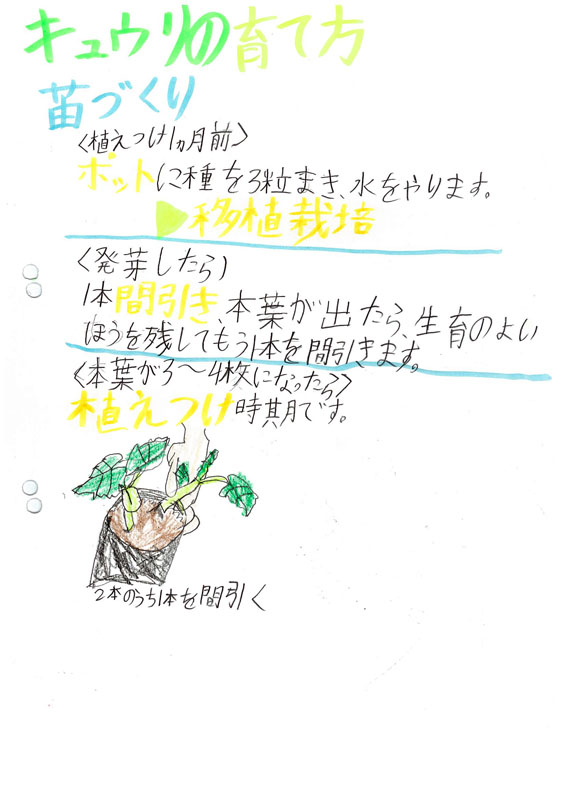 キュウリの育て方
苗づくり
〈植えつけ1ヵ月前〉
ポットに種を3粒まき、水をやります。
▶移植栽培
〈発芽したら〉
1本間引き、本葉が出たら、生育のよい
ほうを残してもう1本を間引きます。
〈本葉が3〜4枚になったら〉
植えつけ時期です。
2本のうち1本を間引く